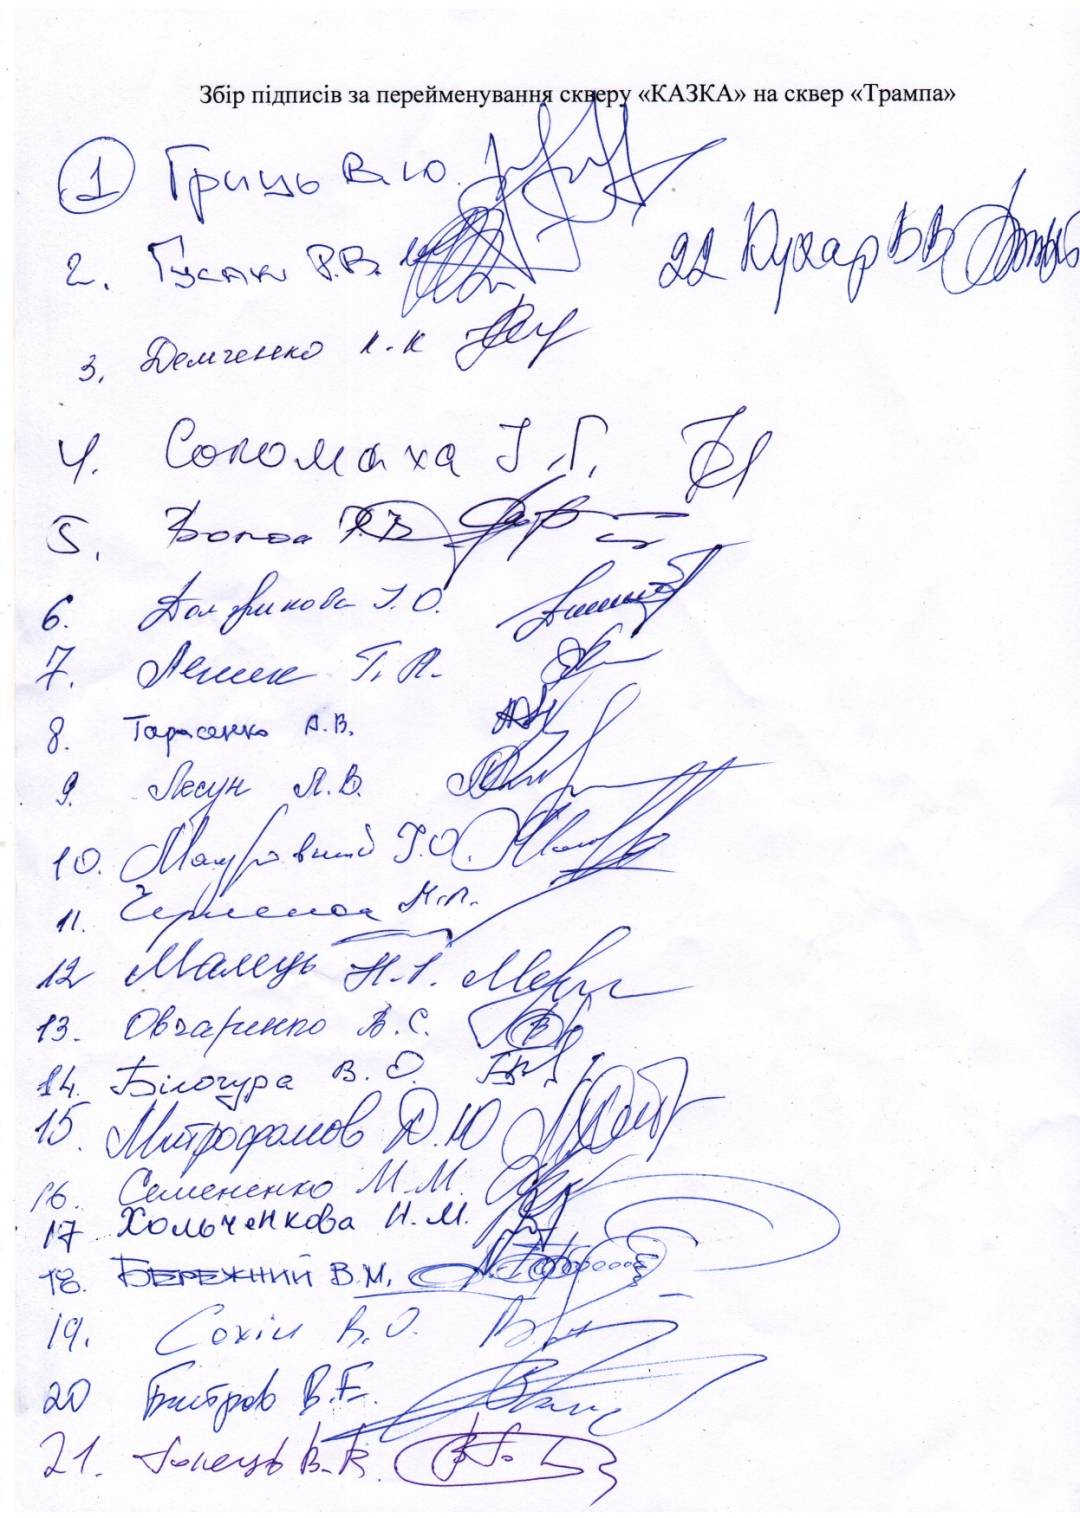 Збір підписів за перейменування скверу «КАЗКА» на сквер «Трампа»
1 Гриць В.Ю.
2. Гусак Р.В.
22 Кухар В В
3. Демченко
4. Соломаха І.Г.
5.
6. Должикова І.О.
7. Т.
8. Тарасенко А.В.
9. Лесун Л.В.
10. Г.О.
11. М.
12 Малець Н.І.
13. Овчаренко В.С.
14. Білогура В.О.
15. Митрофанов Д.Ю
16. Семененко М.М.
17 Хольченкова Н.М.
18. БЕРЕЖНИЙ В.М.
19. Сохін В.О.
20 Бистров В.Г.
21. В.В.